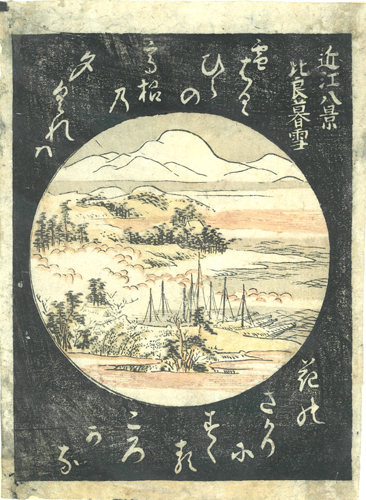 近江八景
比良暮雪
雪はるゝ
ひらの
高根乃
夕くれハ
花の
さかりに
すくる
ころ
かな